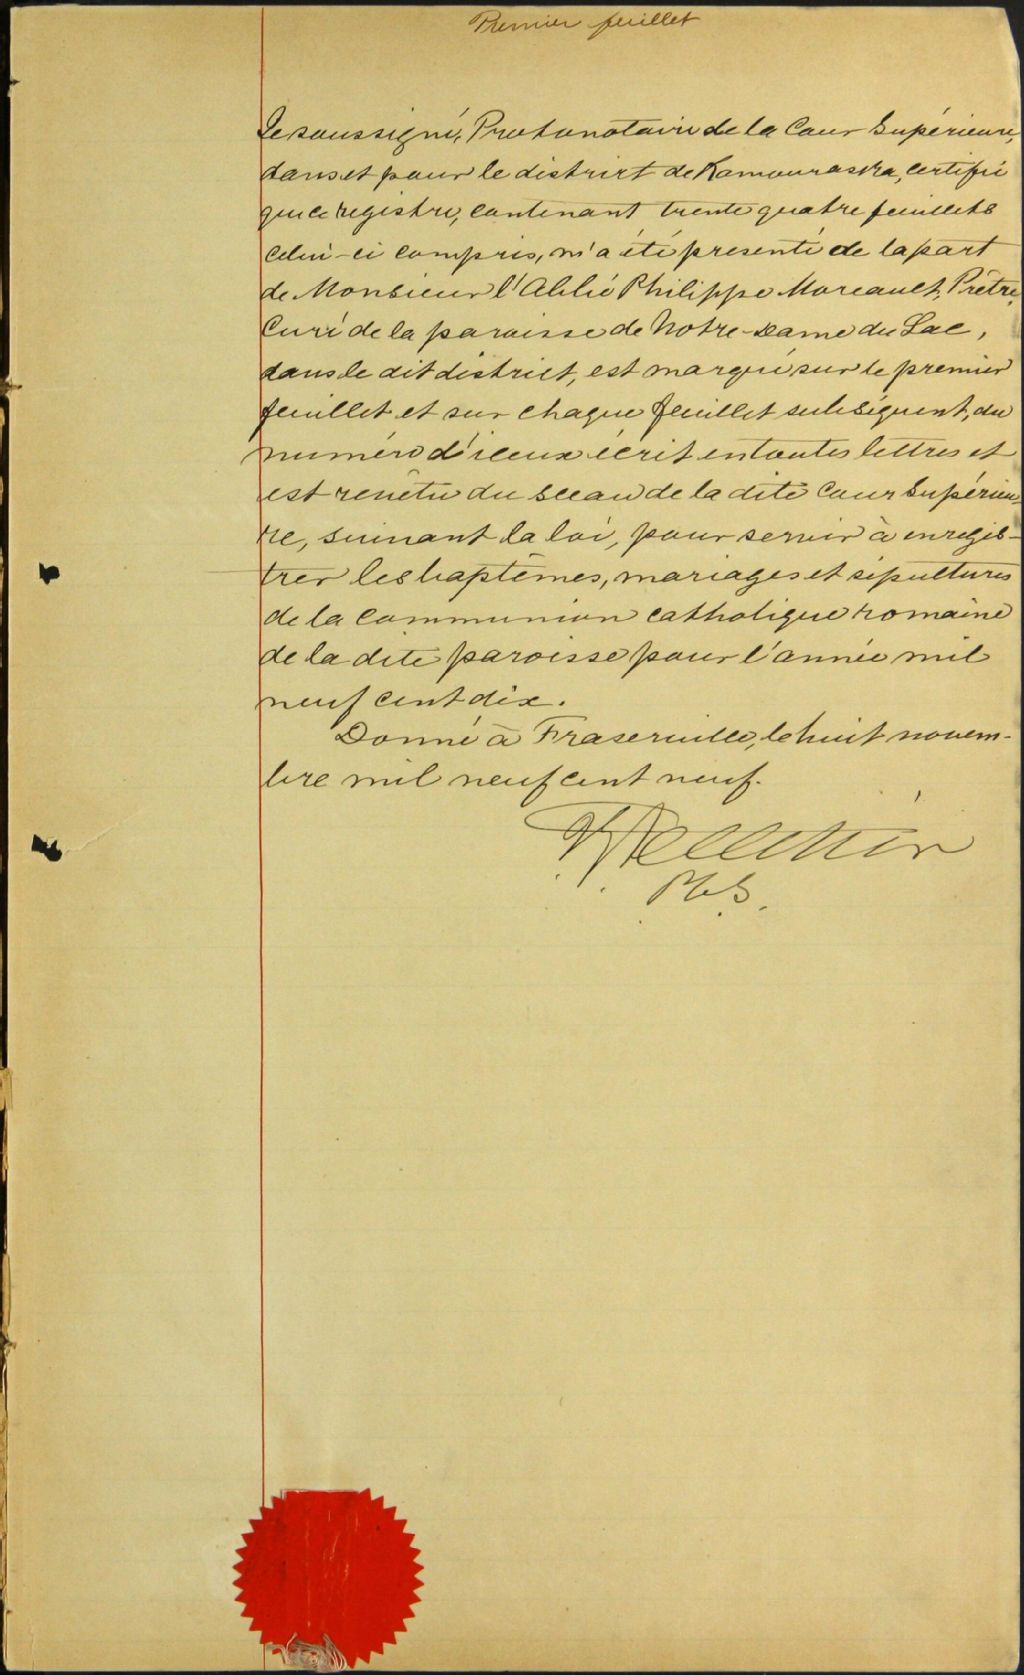 Premier feuillet
Je soussigné, Protonotaire de la Cour Supérieure,
dans et pour le district de Kamouraska, certifie
que ce registre, contenant trente quatre feuillets
celui-ci compris, m'a été presenté de la part
de Monsieur l'Abbé Philippe Moreault, Prêtre,
Curé de la paroisse de Notre-Dame du Lac,
dans le dit district, est marqué sur le premier
feuillet et sur chaque feuillet subséquent, du
numéro d'iceux écrit en toutes lettres et
est revêtu du sceau de la dite Cour Supérieu-
re, suivant la loi, pour servir à enregis-
trer les baptêmes, mariages et sépultures
de la Communion catholique romaine
de la dite paroisse pour l'année mil
neuf cent dix.
Donné à Fraserville, le huit novem-
bre mil neuf cent neuf.
Pelletier
P.C.S.